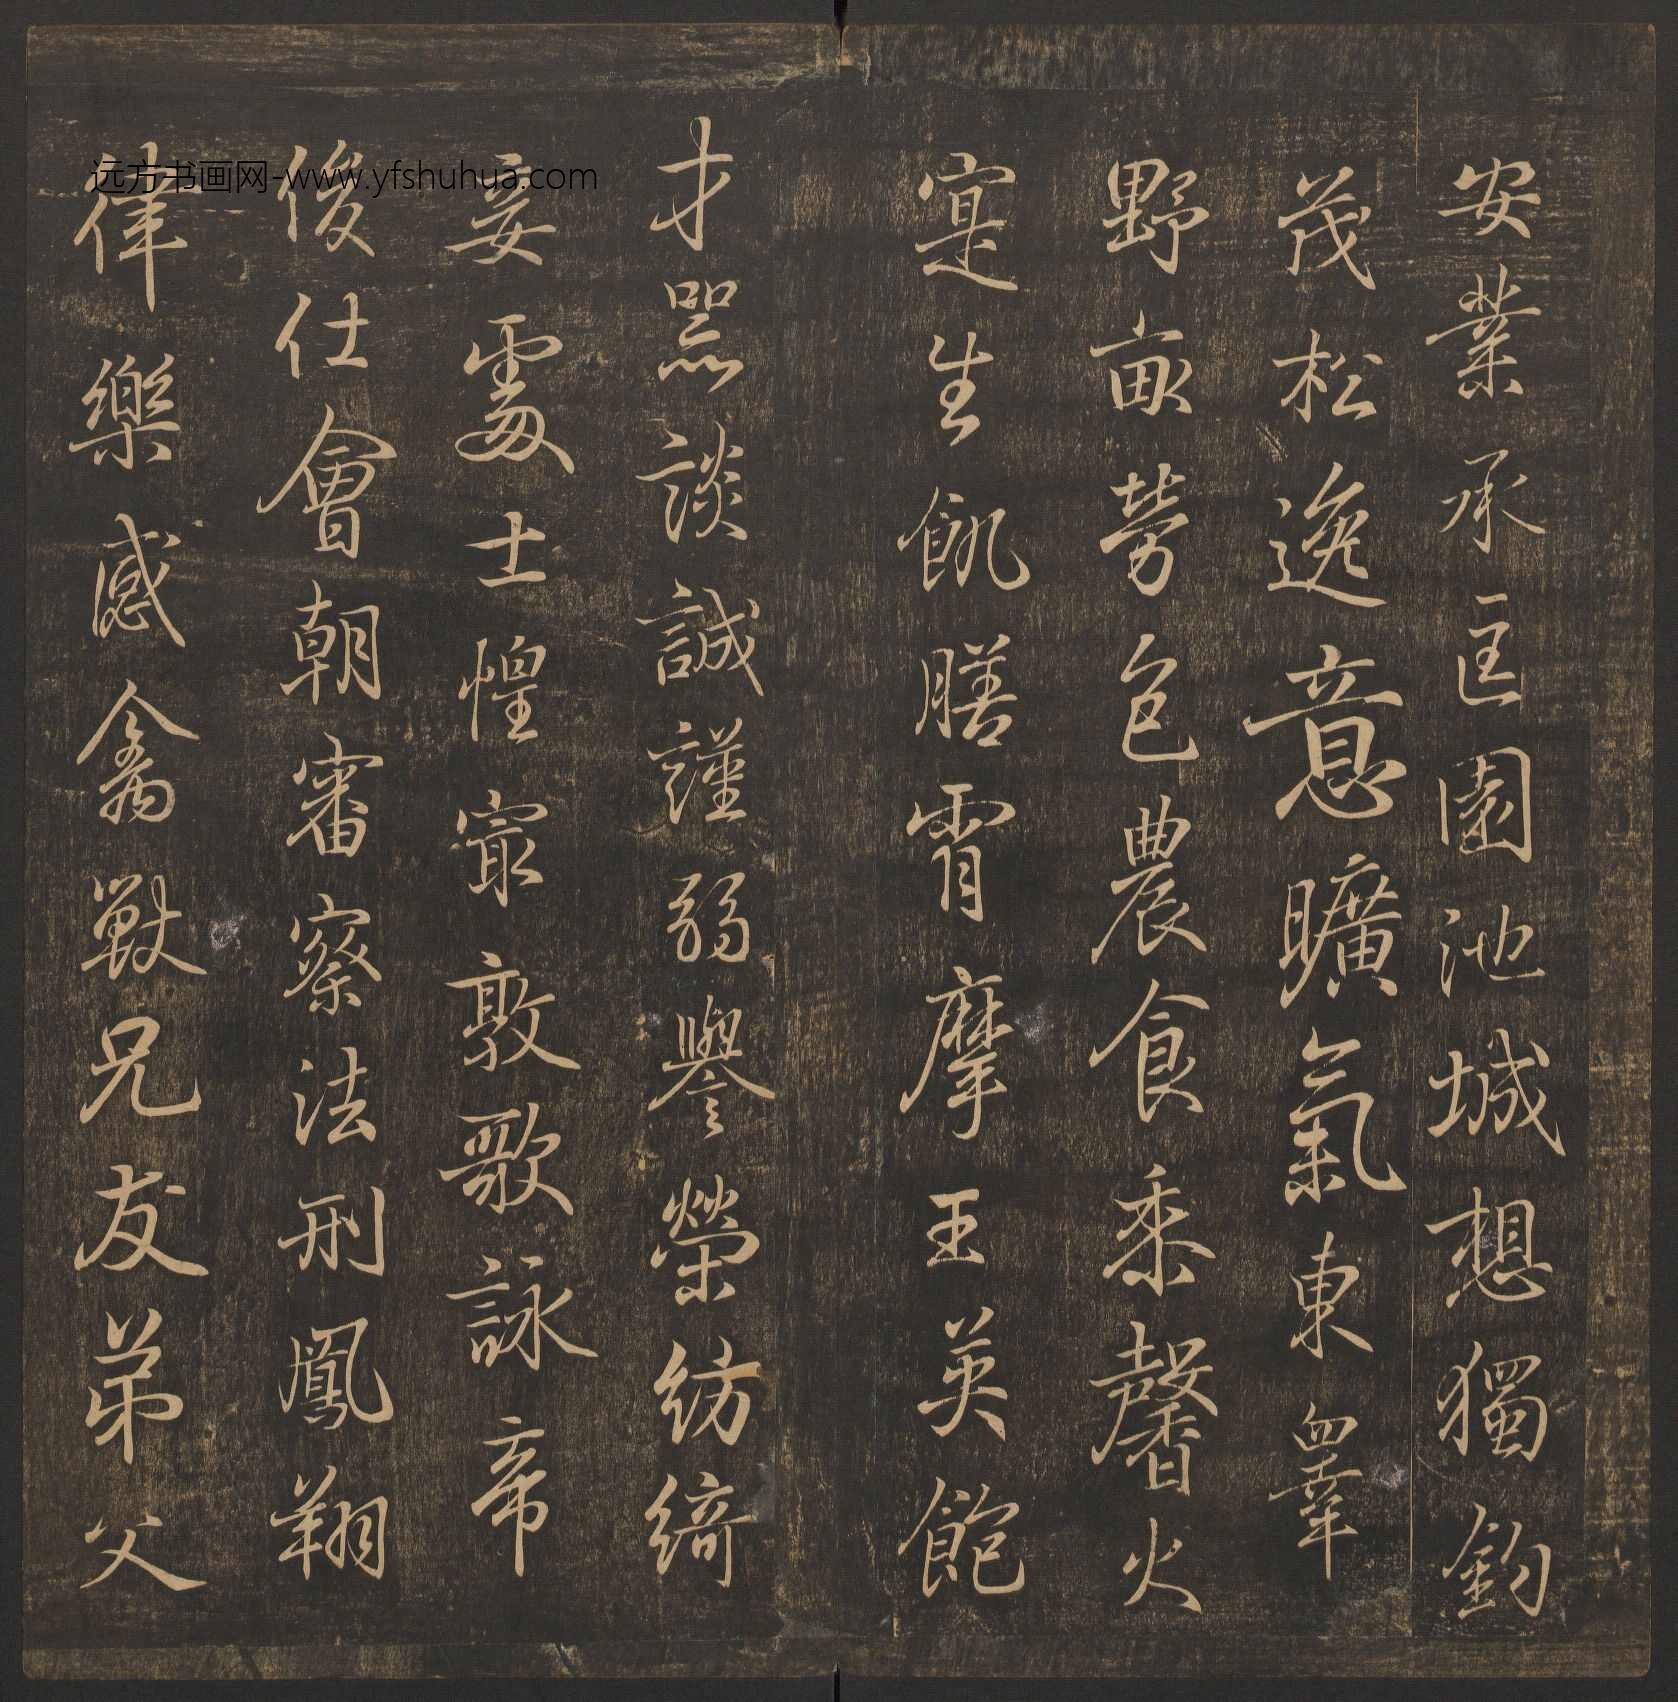 安業承匡園池城想獨釣
茂松逸意曠氣東皋
野畝勞色農食黍馨火
寔生飢膳宵摩王英飽
才器談誠謹弱譽榮紡綺
妾處士惶寂敦歌詠帝
俊仕會朝審察法刑鳳翔
律樂感禽獸兄友弟父
远方书画网-www.yfshuhua.com